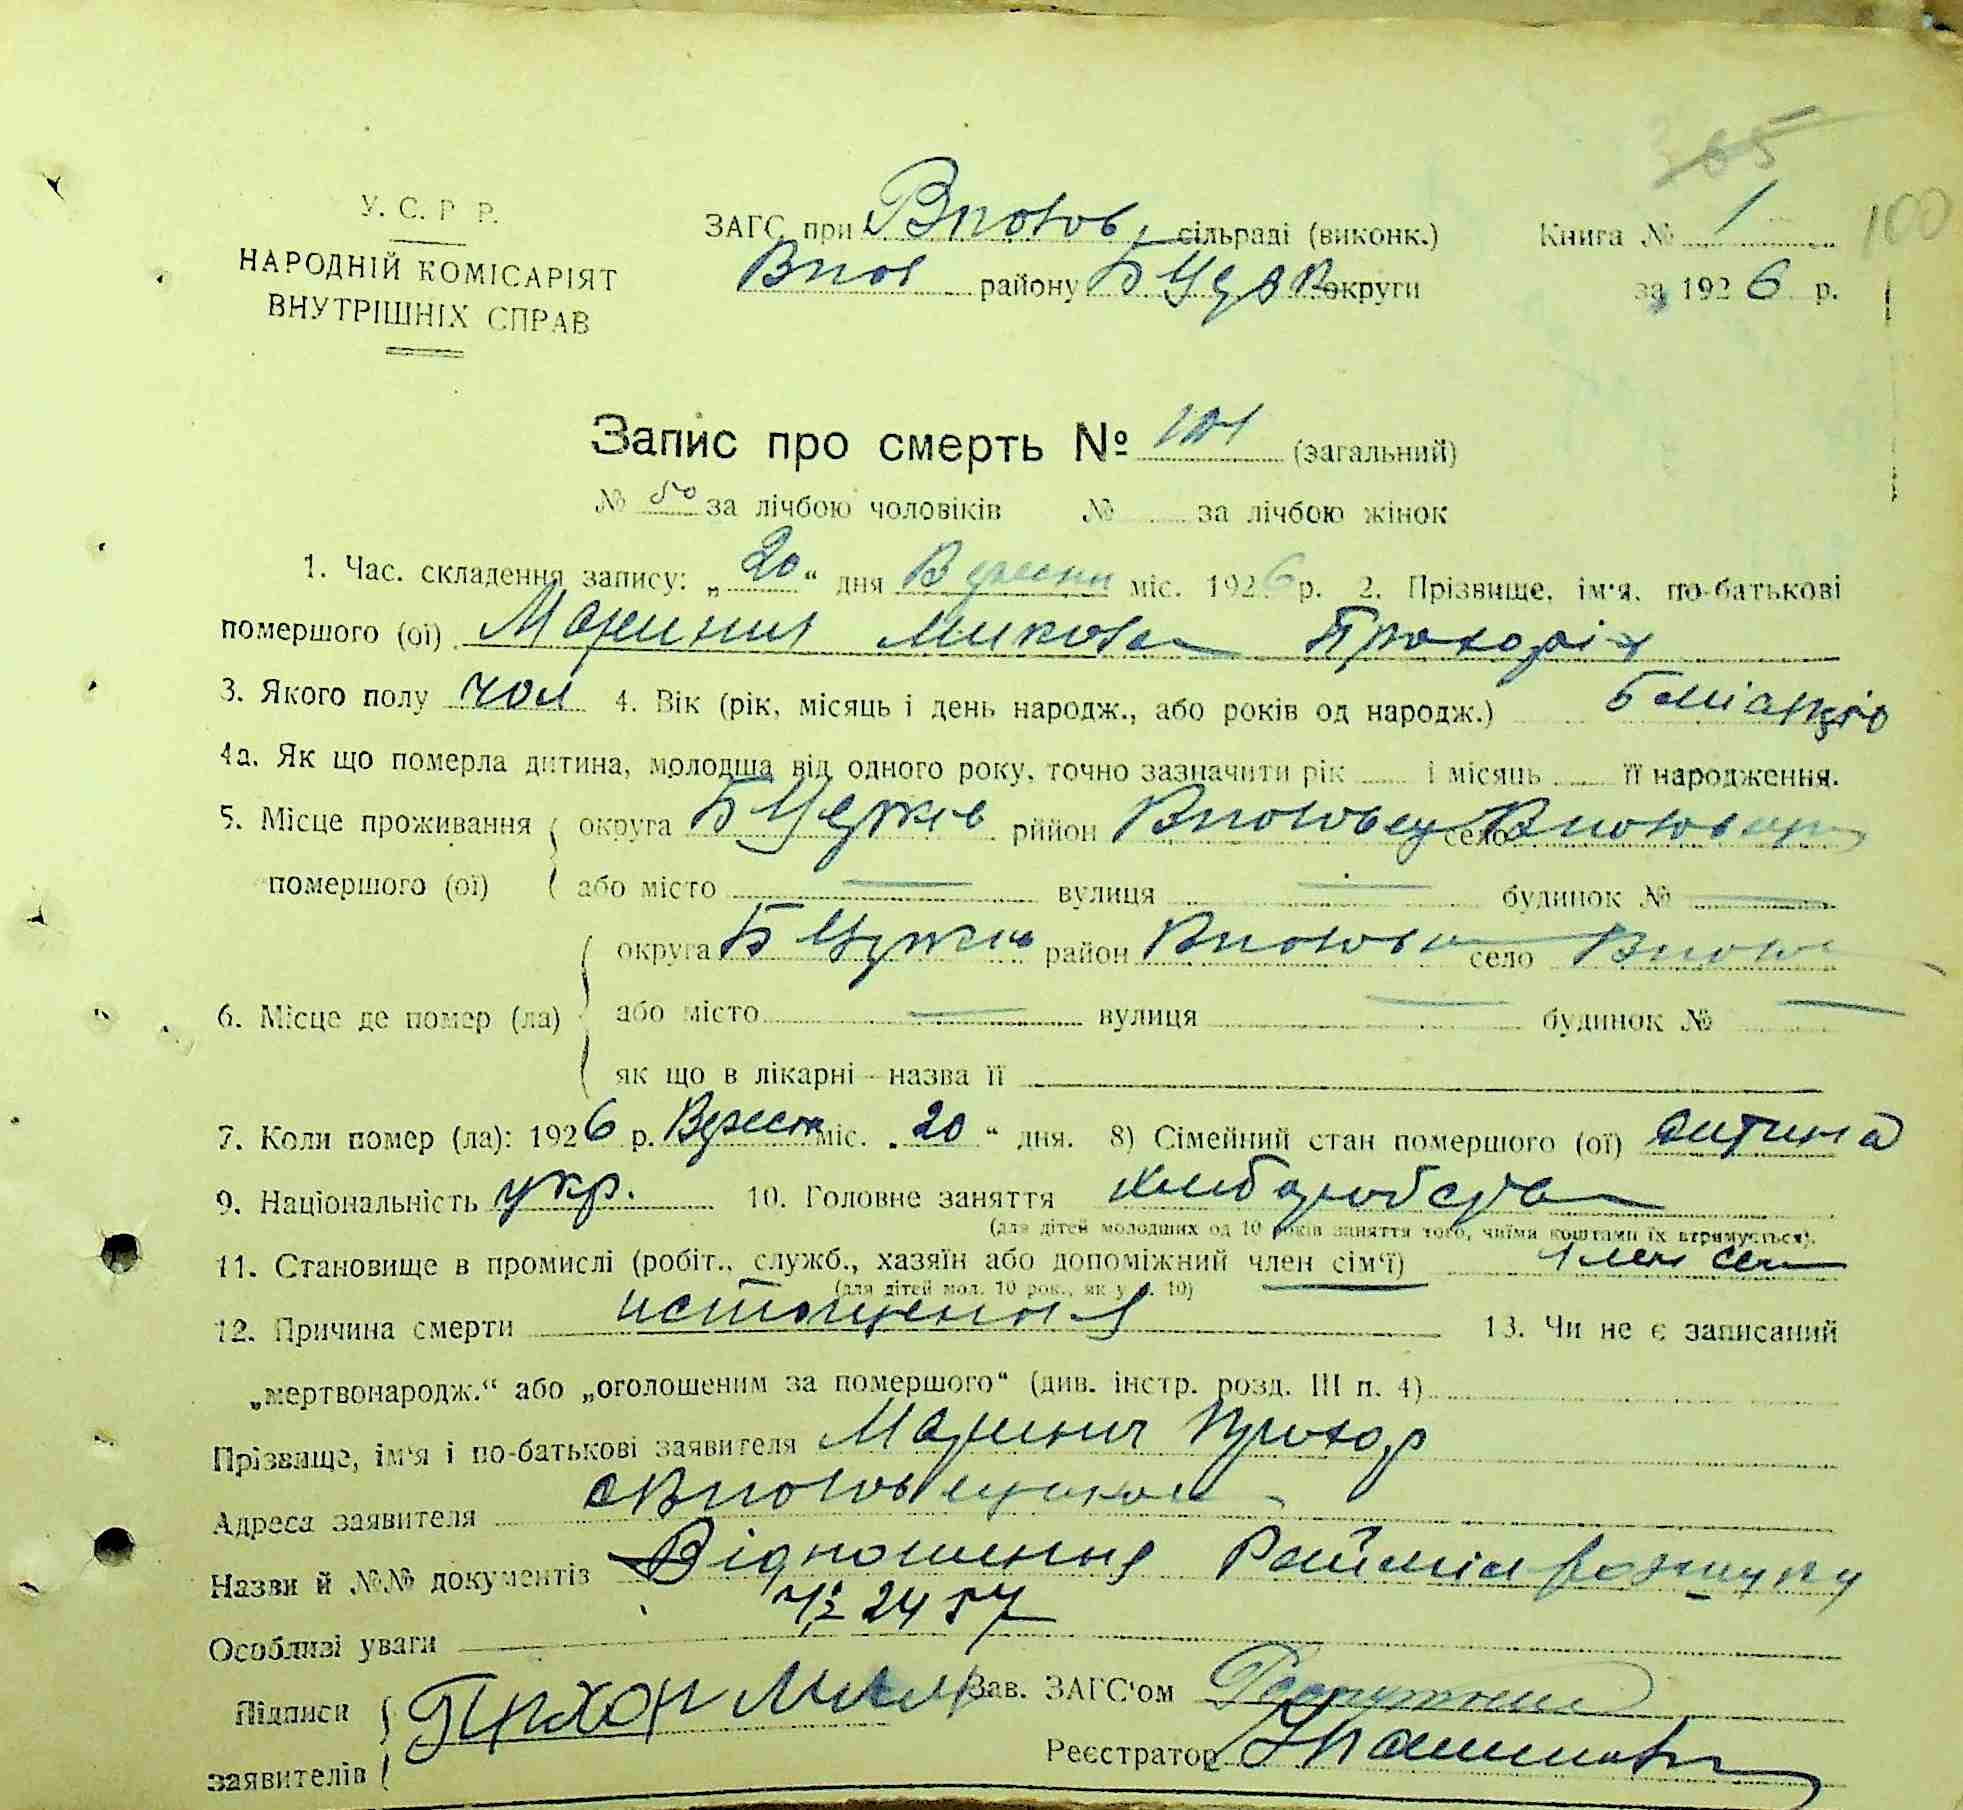 365
У. С. Р Р.
ЗАГС при Вполов. сільраді (виконк.) Книга № 1 100
НАРОДНІЙ КОМІСАРІЯТ
Впол району БЦерк округи за 1926 р.
ВНУТРІШНІХ СПРАВ
Запис про смерть № 101 (загальний)
№ 50 за лічбою чоловіків № за лічбою жінок
1. Час. складення запису: „20“ дня Вересня міс. 1926 р. 2. Прізвище, ім'я, по-батькові
помершого (ої) Маринич Микола Прохорів
3. Якого полу чол 4. Вік (рік, місяць і день народж., або років од народж.) 5 місяців
4а. Як що померла дитина, молодша від одного року, точно зазначити рік і місяць її народження.
5. Місце проживання округа Б Церків рййон село
помершого (ої) або місто — вулиця — будинок № —
округа Б Церків район село
6. Місце де помер (ла) або місто — вулиця — будинок № —
як що в лікарні - назва її
7. Коли помер (ла): 1926 р. Вересн міс. „20“ дня. 8) Сімейний стан помершого (ої) дитина
9. Національність укр. 10. Головне заняття
(для дітей молодших од 10 років заняття того, чиїми коштами їх втримується).
11. Становище в промислі (робіт., служб., хазяїн або допоміжний член сім'ї) член сем
(для дітей мол. 10 рок., як у п. 10)
12. Причина смерти истощения 13. Чи не є записаний
„мертвонародж.“ або „оголошеним за помершого“ (див. інстр. розд. III п. 4)
Прізвище, ім'я і по-батькові заявителя Маринич Прохор
Адреса заявителя
Назви й №№ документів Відношення Райміл розшуку
№ 2457
Особливі уваги
Підписи Прохор Зав. ЗАГС'ом
заявителів Реєстратор